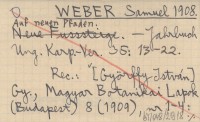 WEBER Samuel 1908.
Auf neuen Pfaden.
Neue Fussstege. — Jahrbuch
Ung. Karp.-Ver. 35: 13–22.
Rec.: "[Györffy István]
Gy., Magyar Botanikai Lapok
(Budapest) 8 (1909), nr. 1-4: